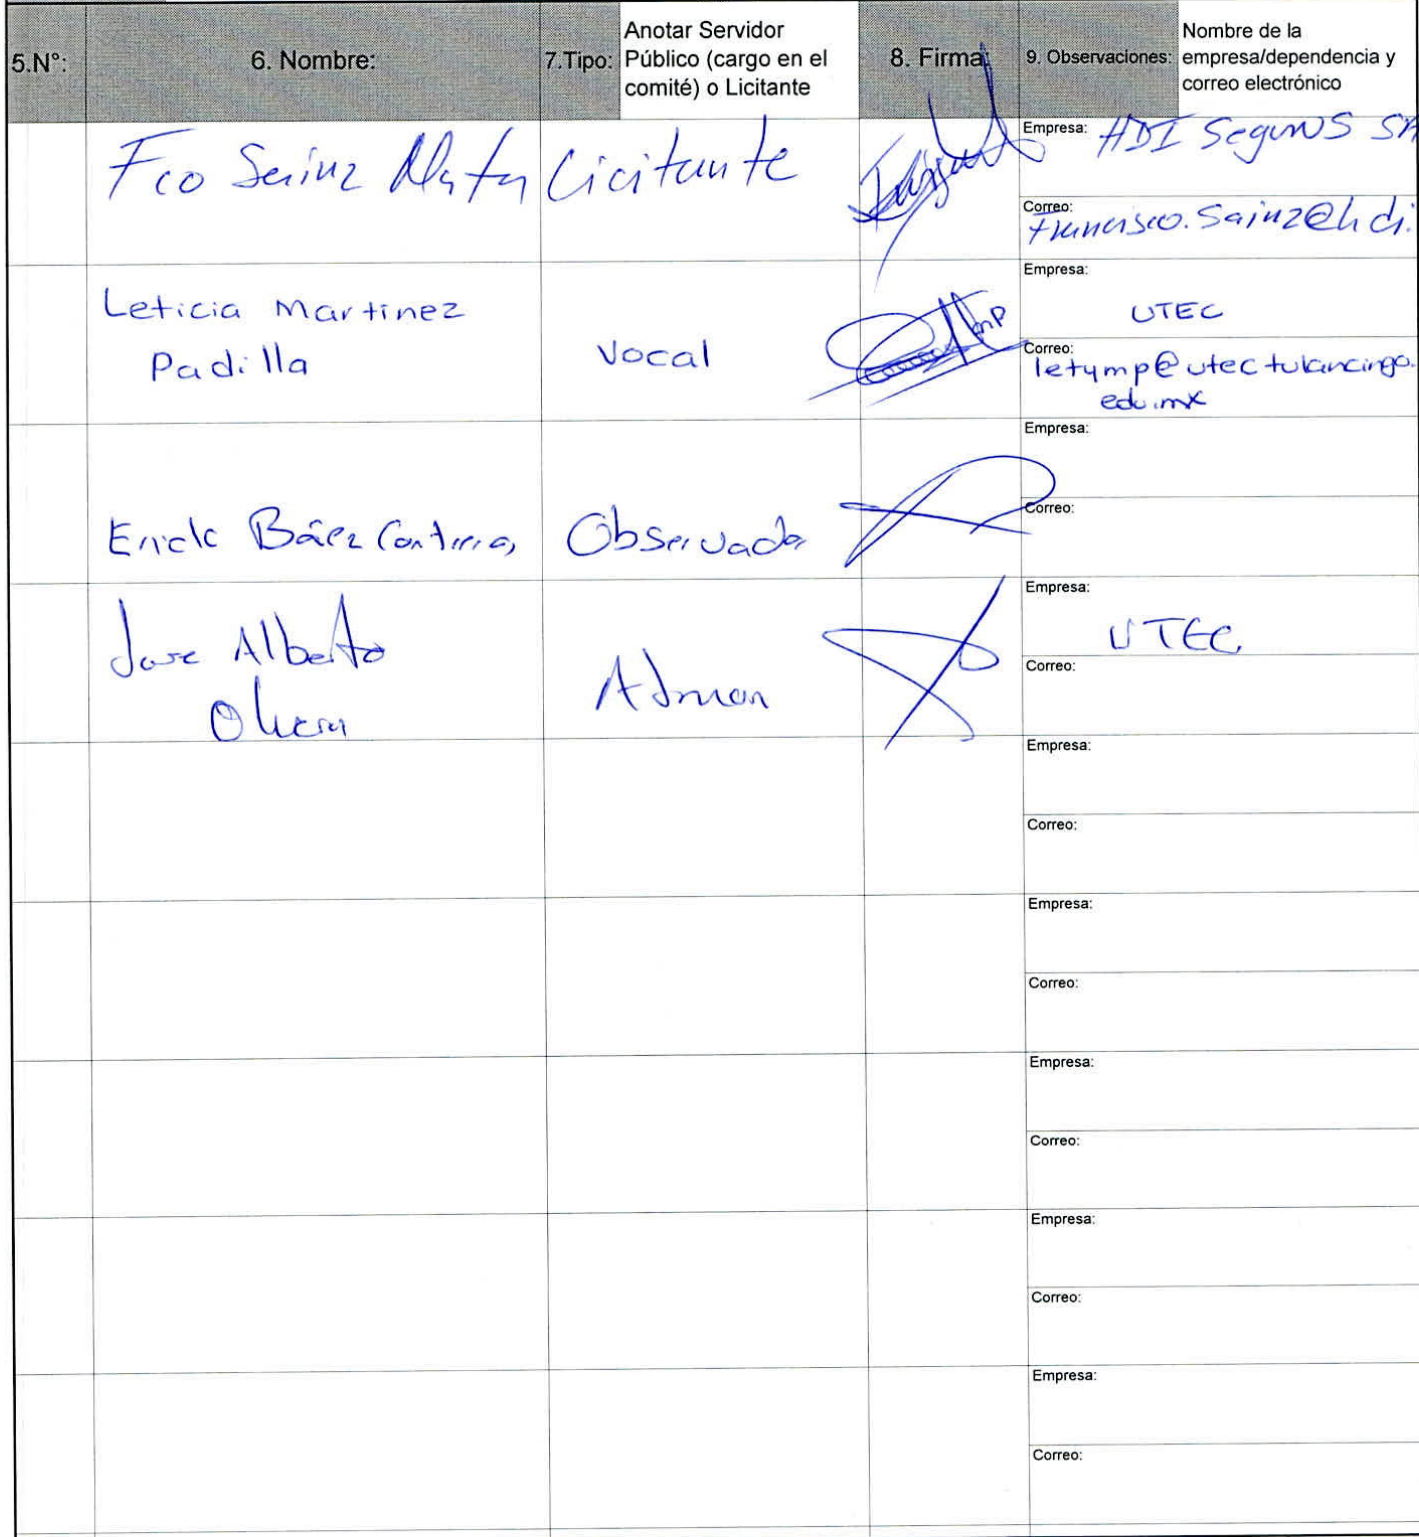 5.N°:
6. Nombre:
7.Tipo:
Anotar Servidor
Público (cargo en el
comité) o Licitante
8. Firma:
9. Observaciones:
Nombre de la
empresa/dependencia y
correo electrónico
Fco Sainz Mata
Licitante
Empresa: HDI Seguros SA
Correo:
Francisco.Sainz@hdi.
Leticia Martinez
Padilla
Vocal
mP
Empresa:
UTEC
Correo:
letymp@utectulancingo.
edu.mx
Erick Báez Contreras
Observador
Empresa:
Correo:
Jose Alberto
Olvera
Admon
Empresa:
UTEC
Correo:
Empresa:
Correo:
Empresa:
Correo:
Empresa:
Correo:
Empresa:
Correo:
Empresa:
Correo: